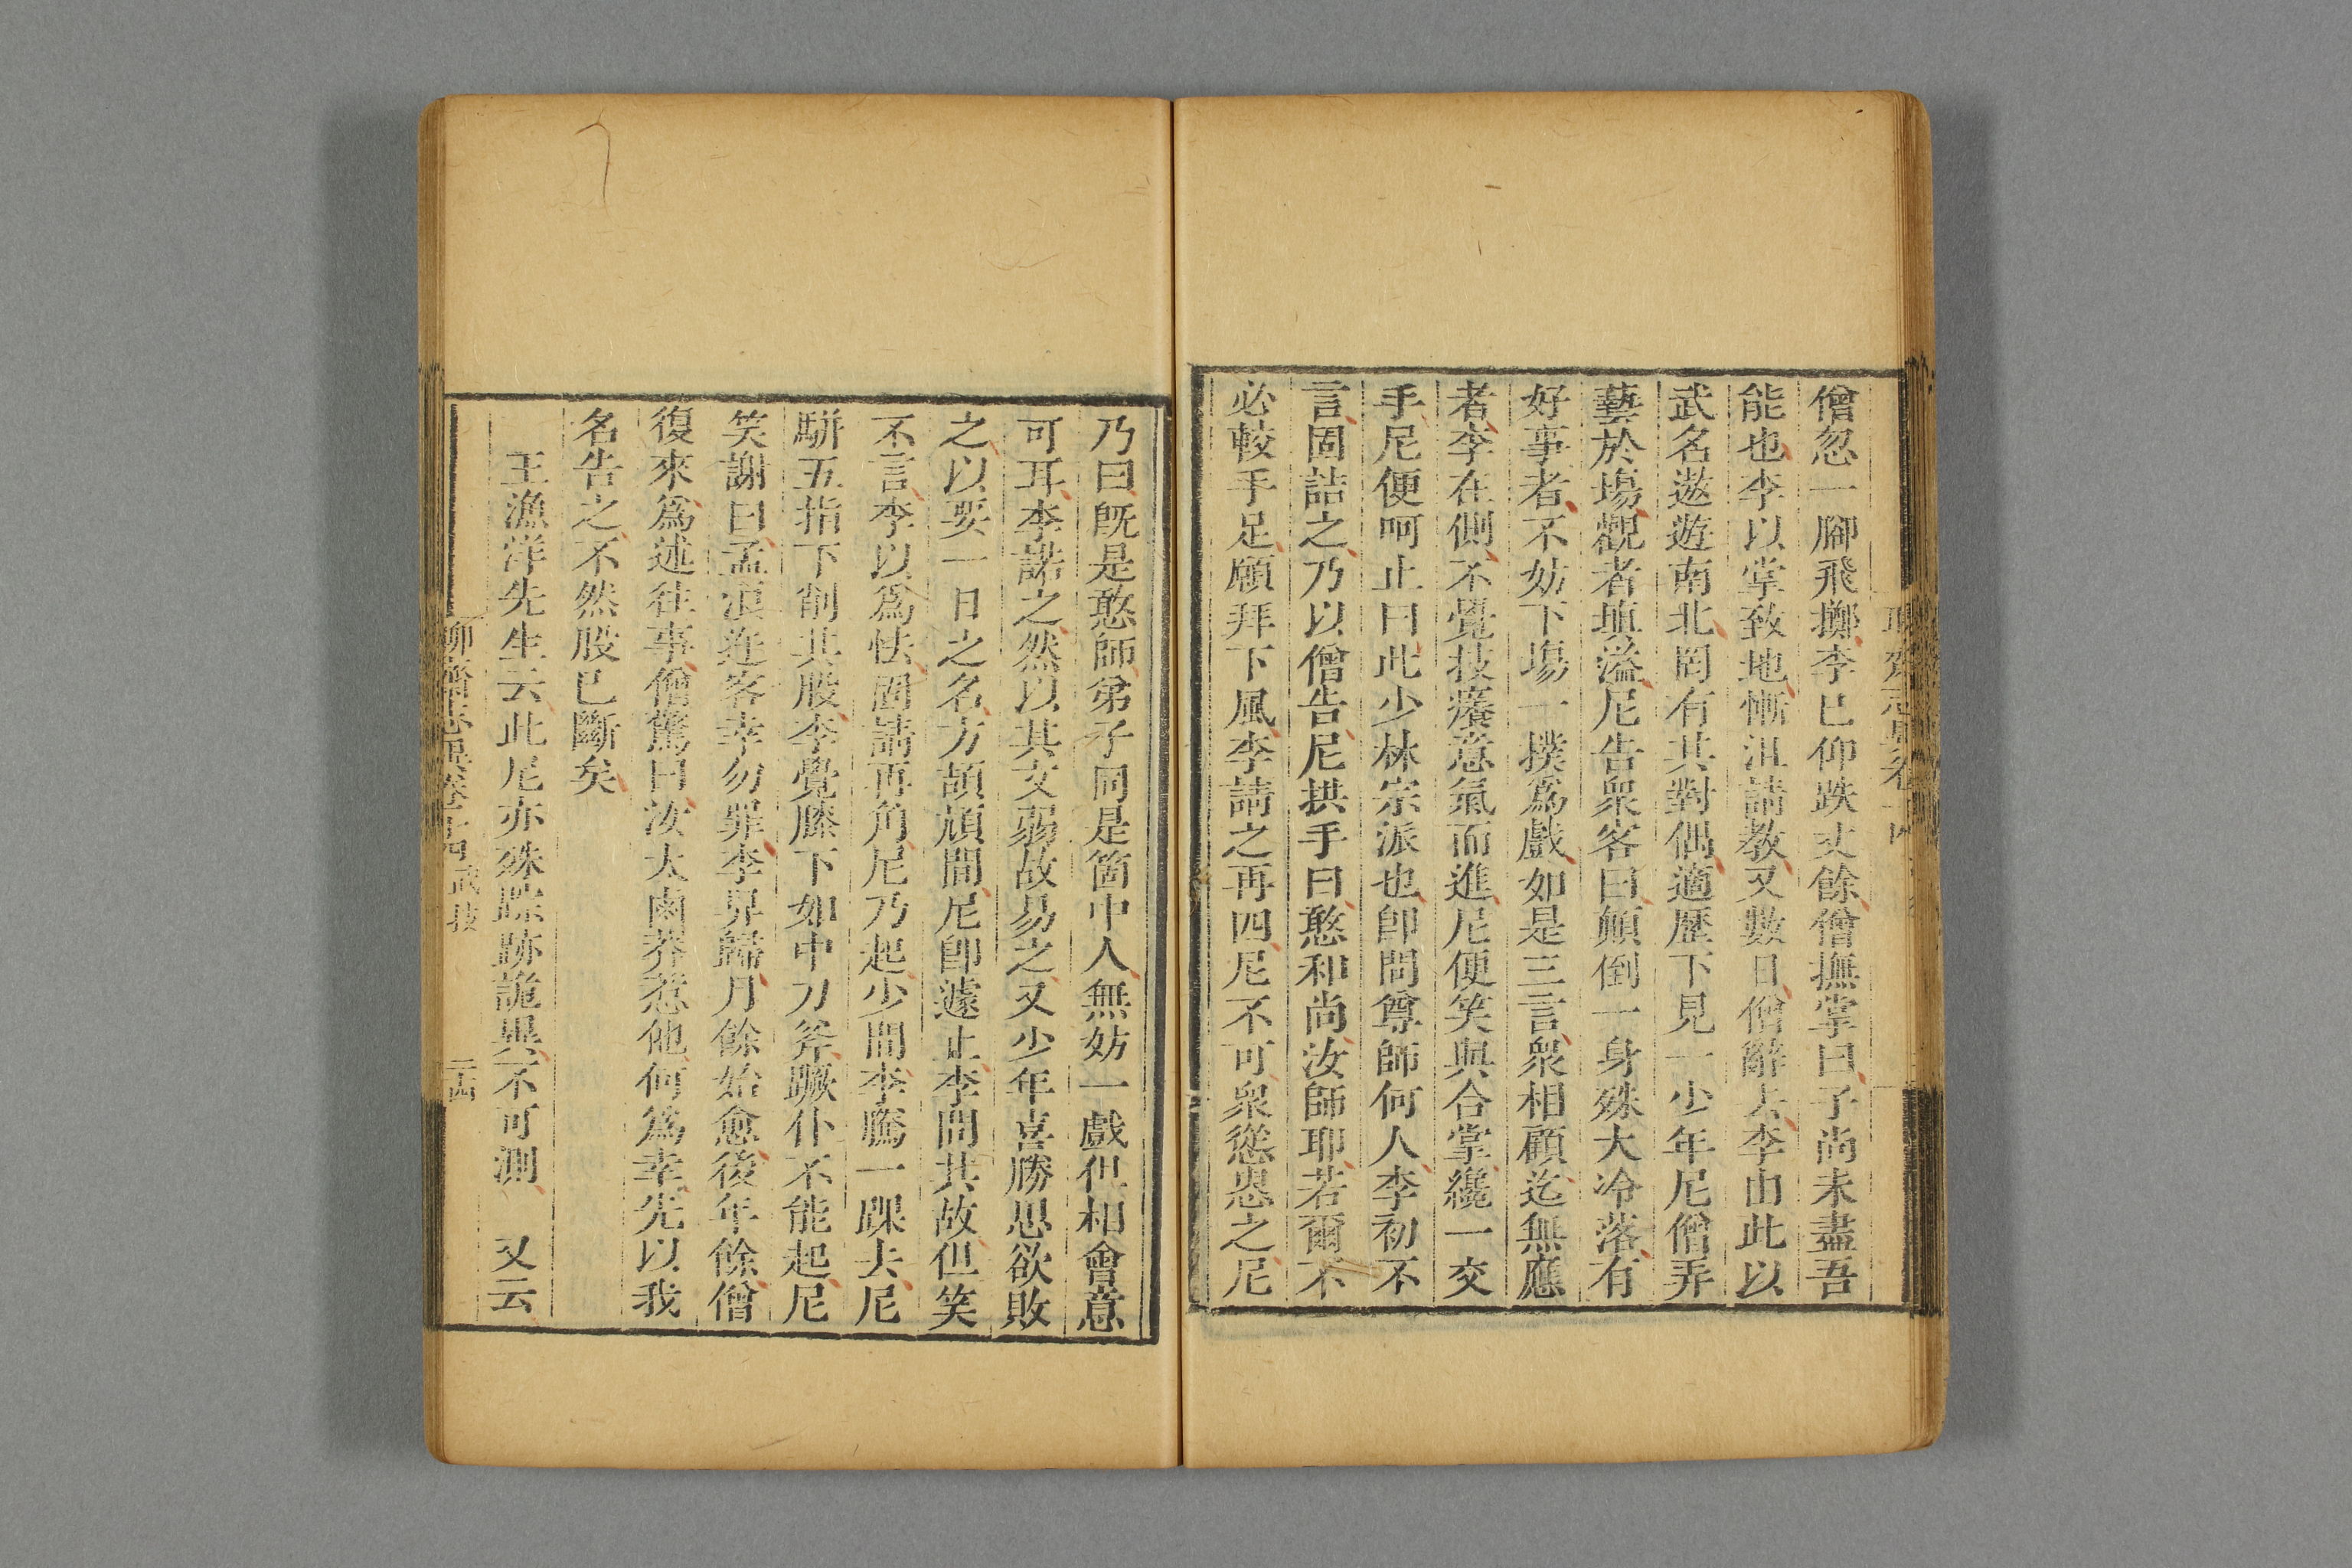 僧忽一腳飛擲李已仰跌丈餘僧撫掌曰子尚未盡吾
能也李以掌致地慚沮請教又數日僧辭去李由此以
武名遨遊南北罔有其對偶適歷下見一少年尼僧弄
藝於場觀者塡溢尼告衆客曰顛倒一身殊大冷落有
好事者不妨下場一撲爲戲如是三言衆相顧迄無應
者李在側不覺技癢意氣而進尼便笑與合掌纔一交
手尼便呵止曰此少林宗派也卽問尊師何人李初不
言固詰之乃以僧告尼拱手曰憨和尚汝師耶若爾不
必較手足願拜下風李請之再四尼不可衆慫恿之尼
乃曰旣是憨師弟子同是箇中人無妨一戲但相會意
可耳李諾之然以其文弱故易之又少年喜勝思欲敗
之以要一日之名方頡頏間尼卽遽止李問其故但笑
不言李以爲怯固請再角尼乃起少間李騰一踝去尼
駢五指下削其股李覺膝下如中刀斧蹶仆不能起尼
笑謝曰孟浪迕客幸勿罪李舁歸月餘始愈後年餘僧
復來爲述往事僧驚曰汝太鹵莽惹他何爲幸先以我
名告之不然股已斷矣
王漁洋先生云此尼亦殊踪跡詭異不可測　又云
聊齋志異卷十四　武技　二四